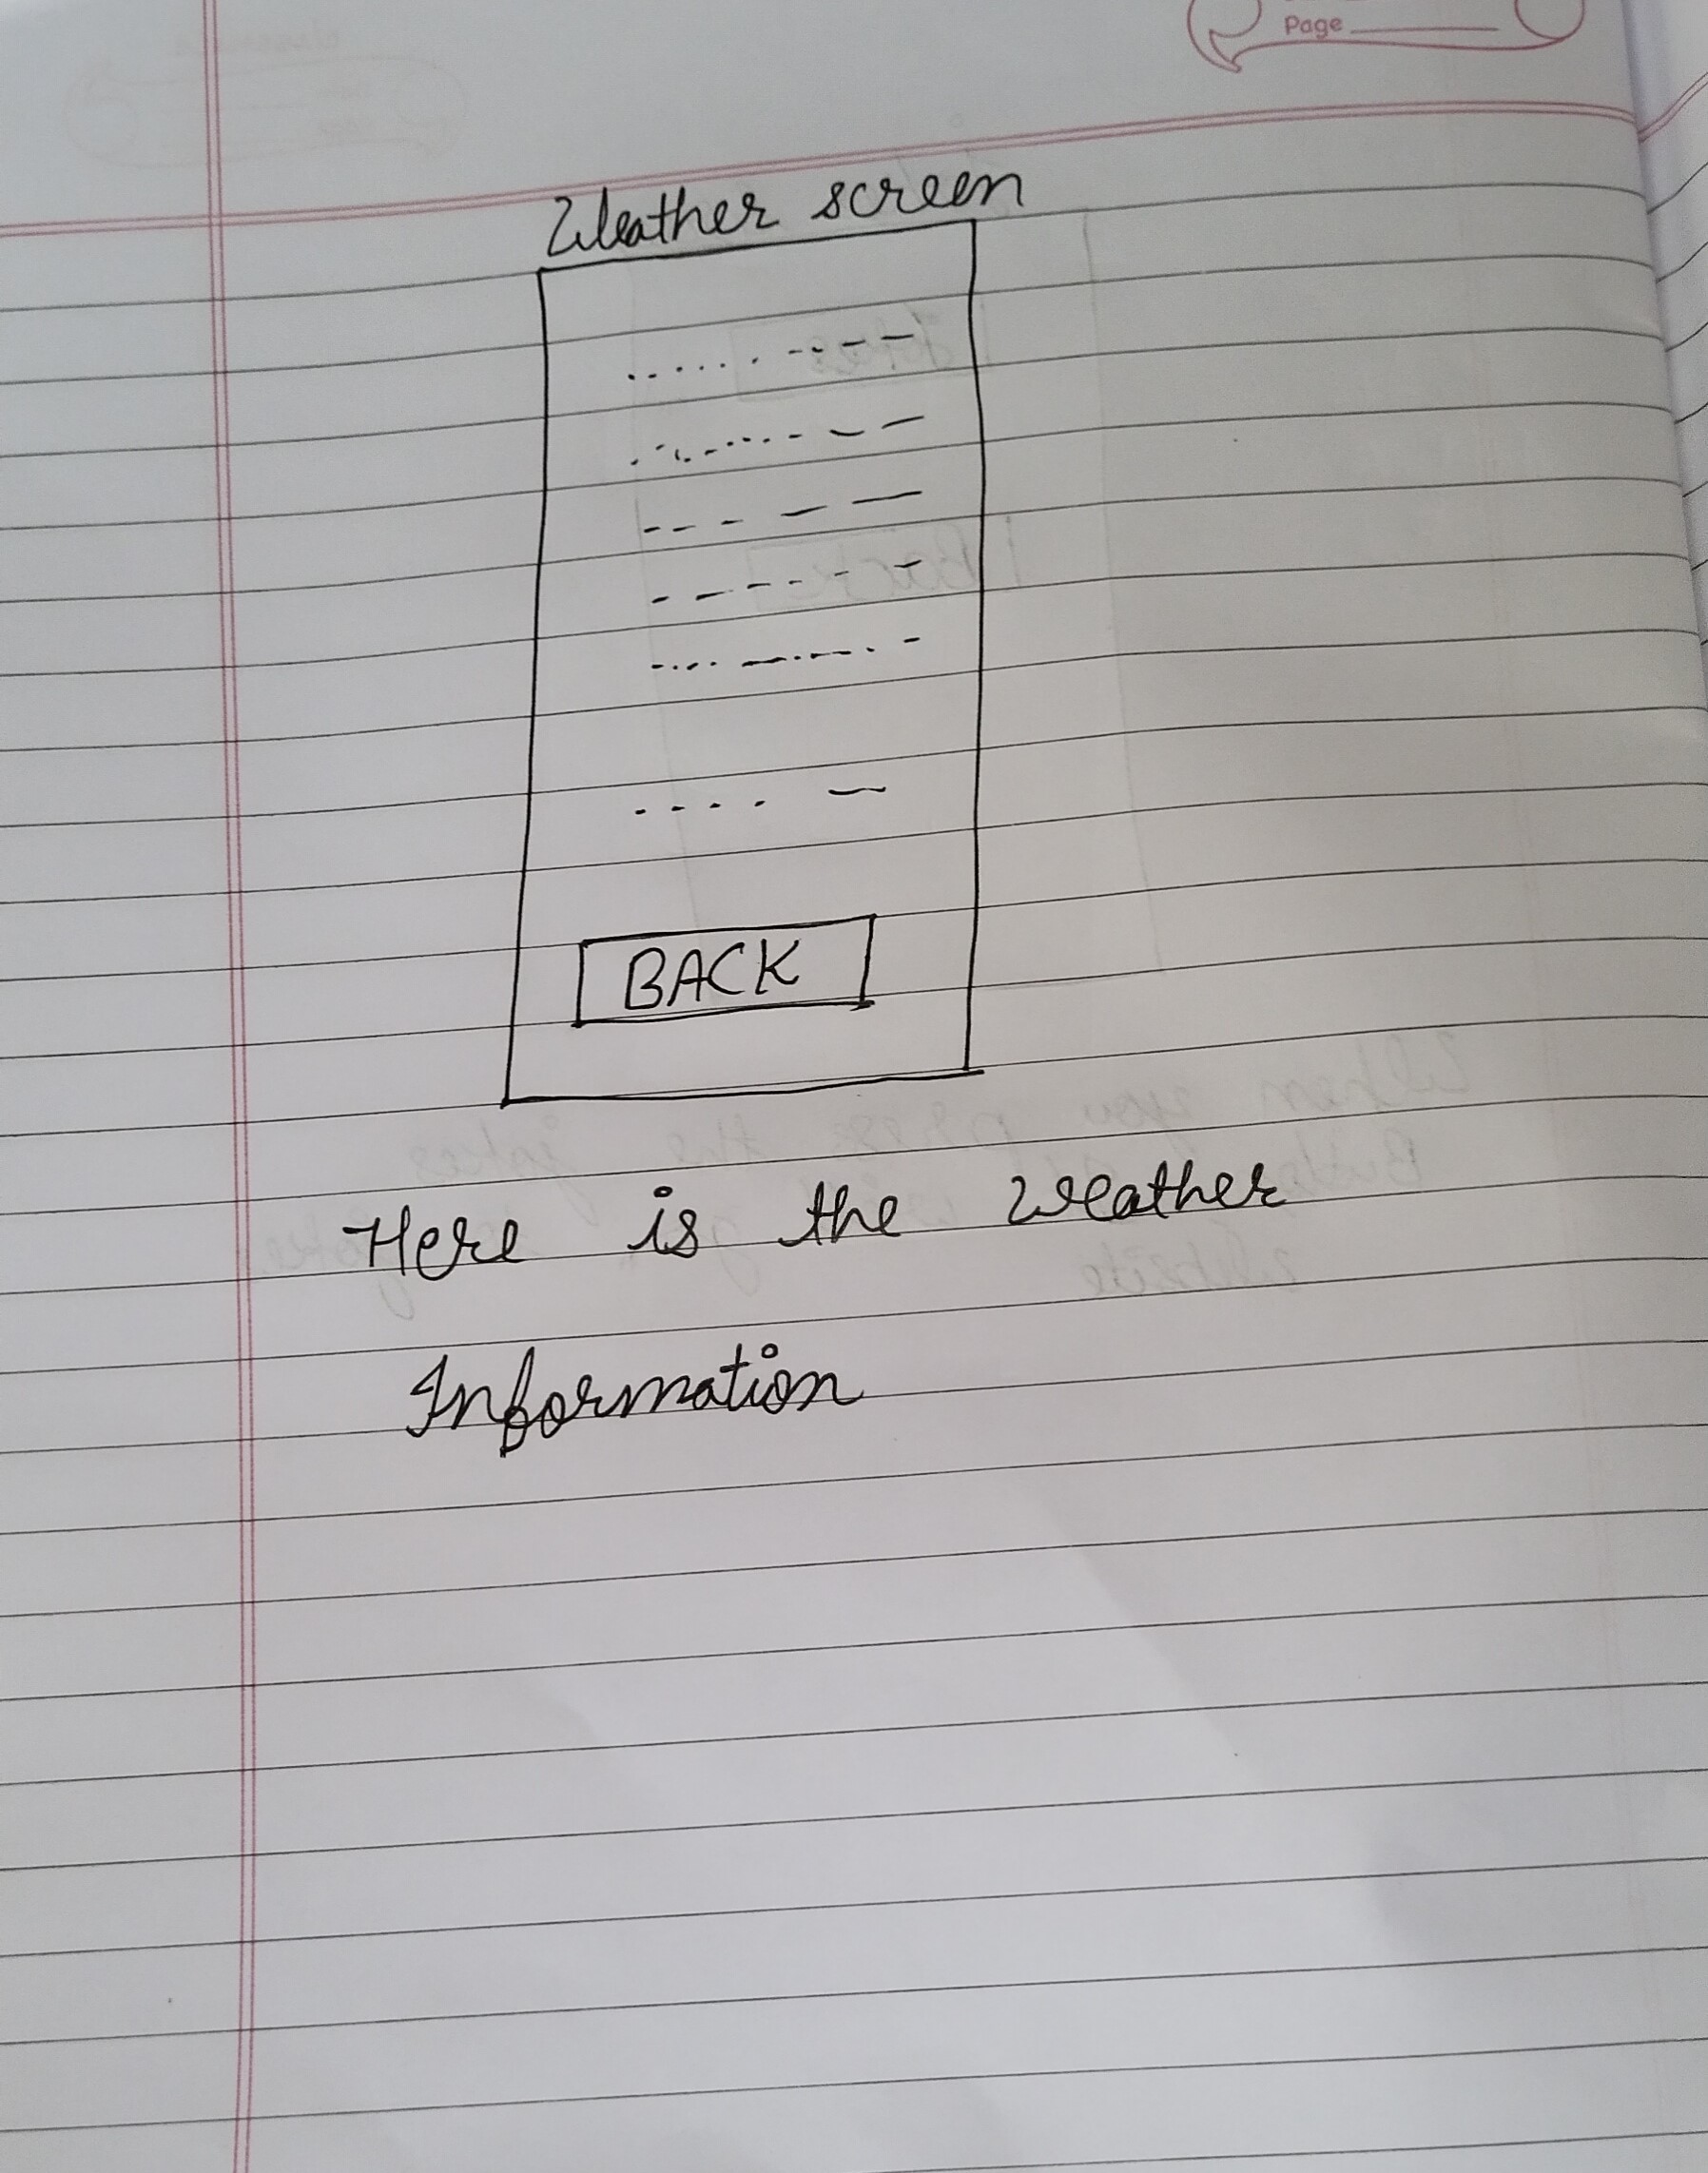 Page
Weather screen
BACK
Here is the Weather
Information